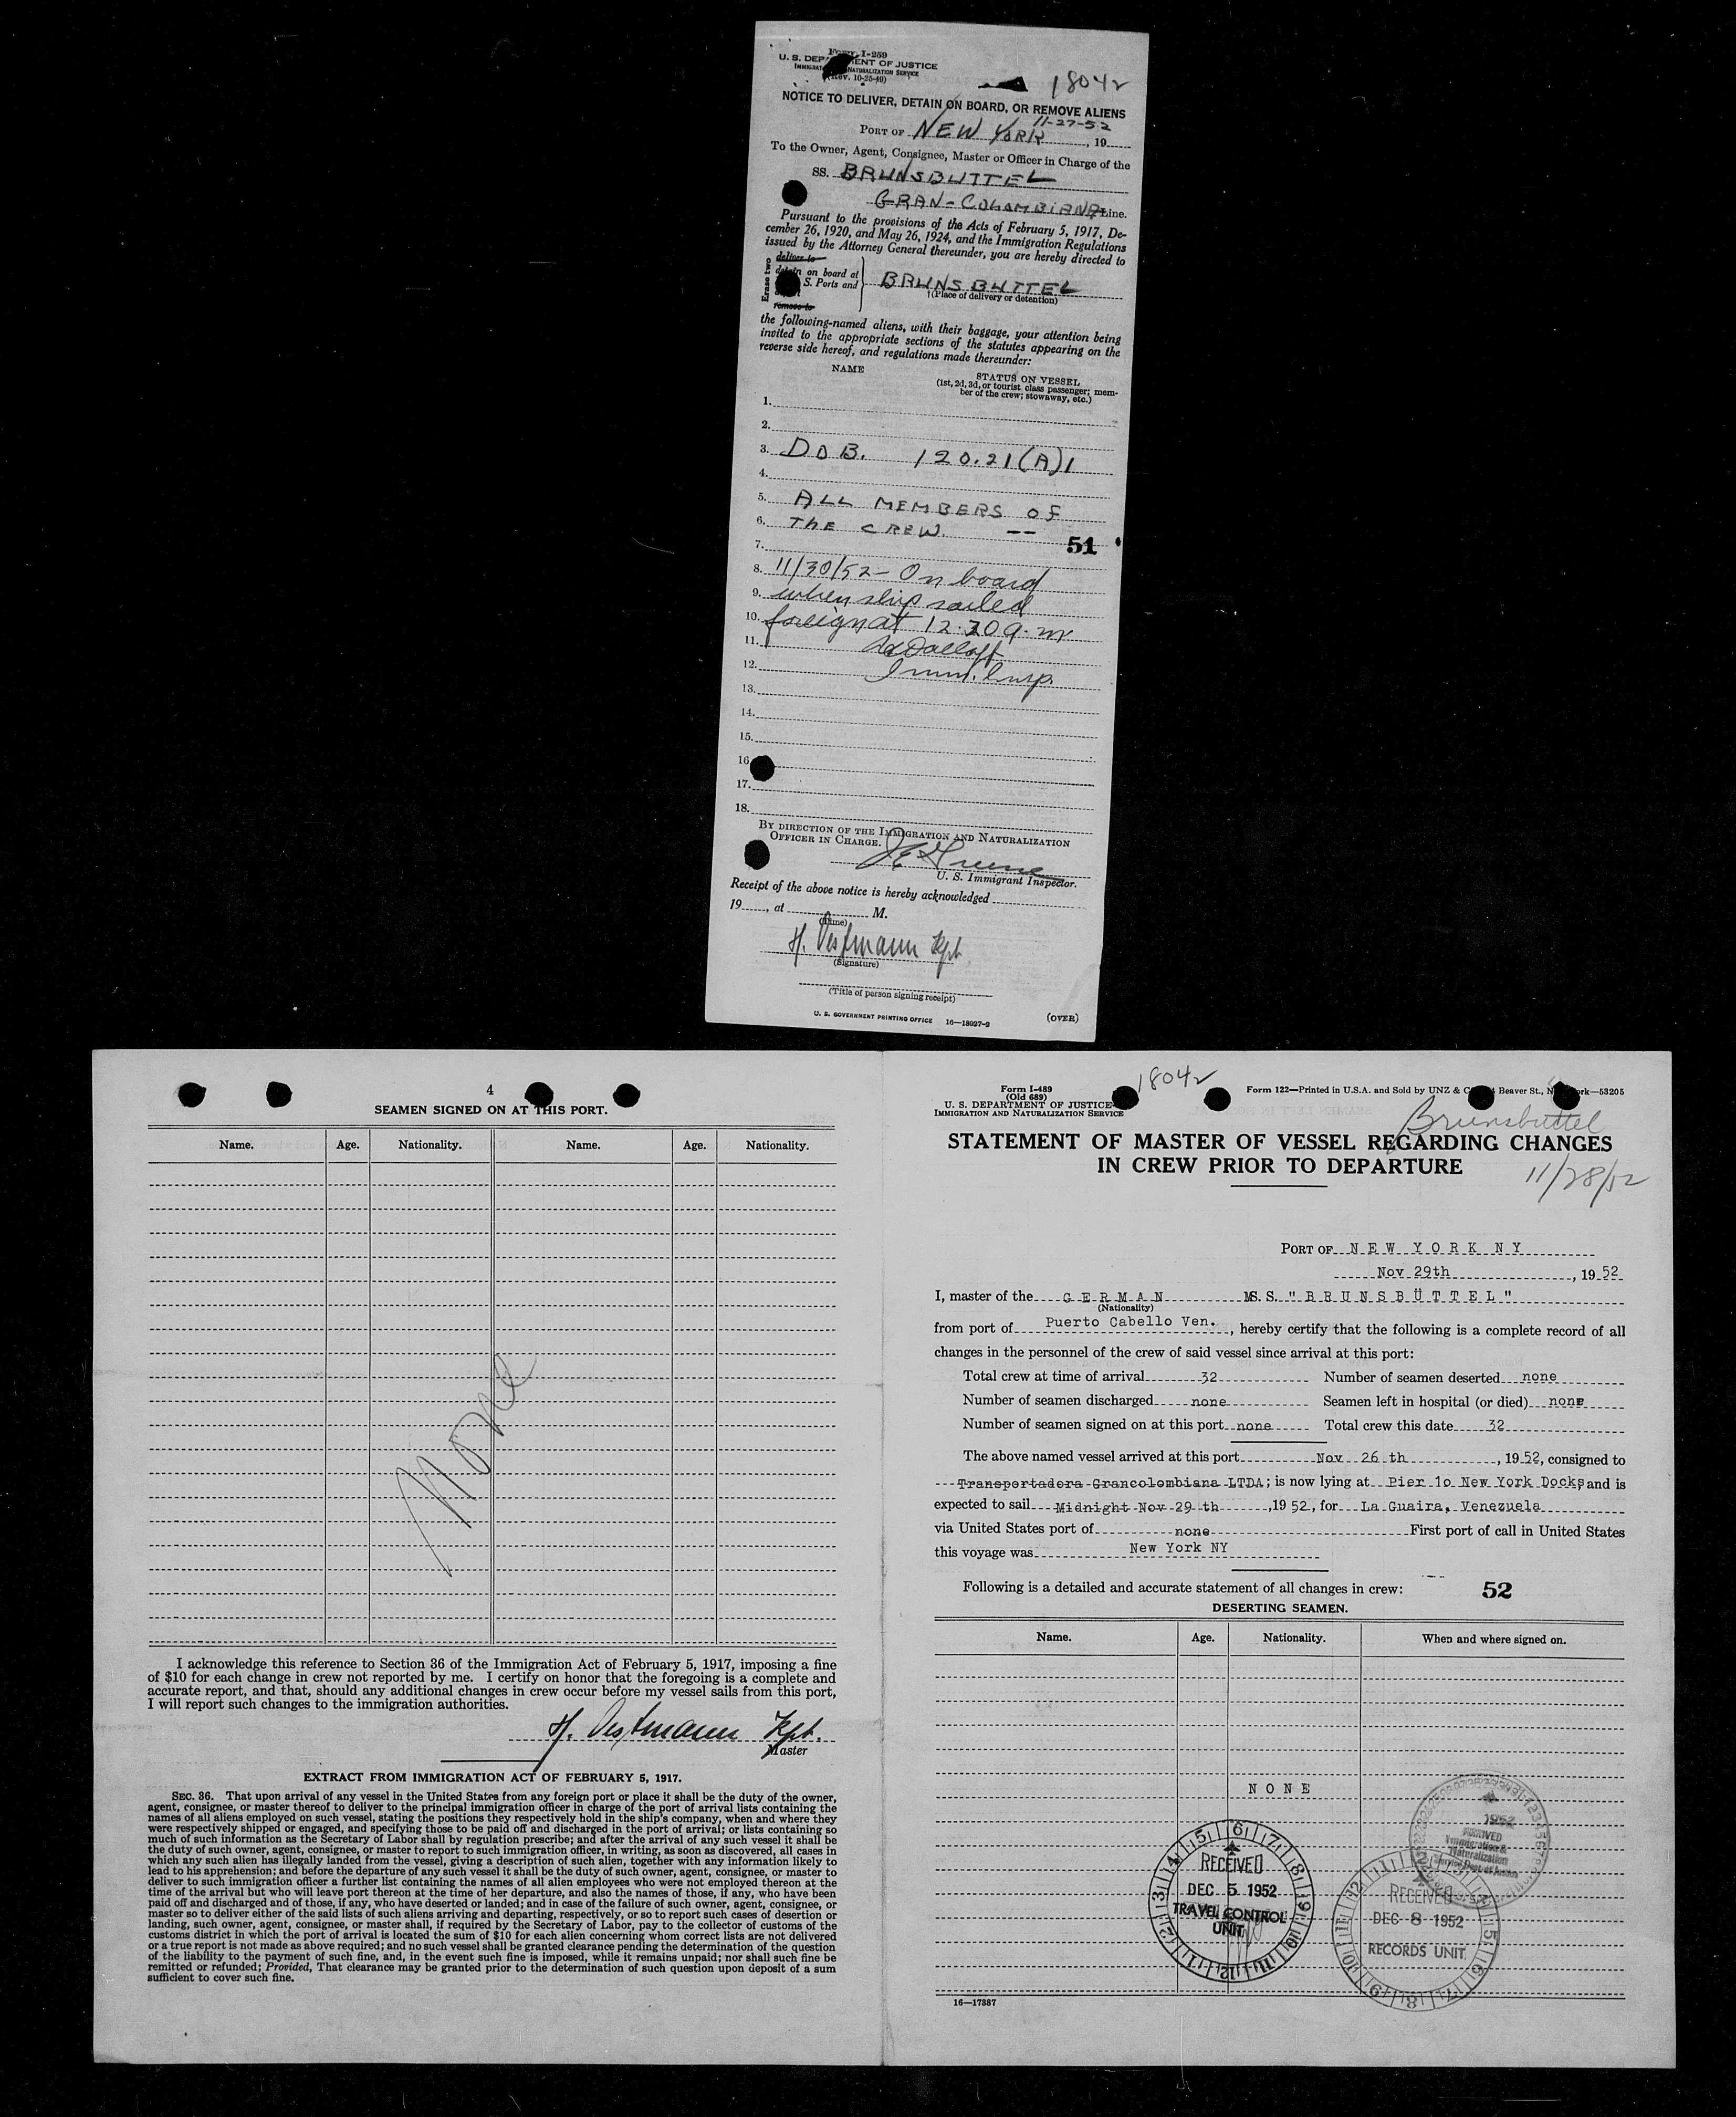 Form I-259
U. S. DEPARTMENT OF JUSTICE
IMMIGRATION NATURALIZATION SERVICE
(Rev. 10-25-49)
18042
NOTICE TO DELIVER, DETAIN ON BOARD, OR REMOVE ALIENS
11-27-52
PORT OF NEW YORK, 19
To the Owner, Agent, Consignee, Master or Officer in Charge of the
SS. BRUNSBUTTEL
GRAN-COLOMBIANA Line.
Pursuant to the provisions of the Acts of February 5, 1917, De-
cember 26, 1920, and May 26, 1924, and the Immigration Regulations
issued by the Attorney General thereunder, you are hereby directed to
Erase two
deliver to
detain on board at
S. Ports and
remove to
BRUNSBUTTEL
†(Place of delivery or detention)
the following-named aliens, with their baggage, your attention being
invited to the appropriate sections of the statutes appearing on the
reverse side hereof, and regulations made thereunder:
NAME
STATUS ON VESSEL
(1st, 2d, 3d, or tourist class passenger; mem-
ber of the crew; stowaway, etc.)
1.
2.
3. DOB. 120.21(A)1
4.
5. ALL MEMBERS OF
6. THE CREW. --
51
7.
8. 11/30/52 - On board
9. when ship sailed
10. foreign at 12.30 a.m
11.
12. Imm. Insp.
13.
14.
15.
16.
17.
18.
BY DIRECTION OF THE IMMIGRATION AND NATURALIZATION
OFFICER IN CHARGE.
U. S. Immigrant Inspector.
Receipt of the above notice is hereby acknowledged
19, at M.
(Time)
H. Oestmann Kpt.
(Signature)
(Title of person signing receipt)
U. S. GOVERNMENT PRINTING OFFICE 16—18027-2 (OVER)
4
SEAMEN SIGNED ON AT THIS PORT.
Name. Age. Nationality. Name. Age. Nationality.
None
I acknowledge this reference to Section 36 of the Immigration Act of February 5, 1917, imposing a fine
of $10 for each change in crew not reported by me. I certify on honor that the foregoing is a complete and
accurate report, and that, should any additional changes in crew occur before my vessel sails from this port,
I will report such changes to the immigration authorities.
H. Oestmann Kpt.
Master
EXTRACT FROM IMMIGRATION ACT OF FEBRUARY 5, 1917.
SEC. 36. That upon arrival of any vessel in the United States from any foreign port or place it shall be the duty of the owner,
agent, consignee, or master thereof to deliver to the principal immigration officer in charge of the port of arrival lists containing the
names of all aliens employed on such vessel, stating the positions they respectively hold in the ship's company, when and where they
were respectively shipped or engaged, and specifying those to be paid off and discharged in the port of arrival; or lists containing so
much of such information as the Secretary of Labor shall by regulation prescribe; and after the arrival of any such vessel it shall be
the duty of such owner, agent, consignee, or master to report to such immigration officer, in writing, as soon as discovered, all cases in
which any such alien has illegally landed from the vessel, giving a description of such alien, together with any information likely to
lead to his apprehension; and before the departure of any such vessel it shall be the duty of such owner, agent, consignee, or master to
deliver to such immigration officer a further list containing the names of all alien employees who were not employed thereon at the
time of the arrival but who will leave port thereon at the time of her departure, and also the names of those, if any, who have been
paid off and discharged and of those, if any, who have deserted or landed; and in case of the failure of such owner, agent, consignee, or
master so to deliver either of the said lists of such aliens arriving and departing, respectively, or so to report such cases of desertion or
landing, such owner, agent, consignee, or master shall, if required by the Secretary of Labor, pay to the collector of customs of the
customs district in which the port of arrival is located the sum of $10 for each alien concerning whom correct lists are not delivered
or a true report is not made as above required; and no such vessel shall be granted clearance pending the determination of the question
of the liability to the payment of such fine, and, in the event such fine is imposed, while it remains unpaid; nor shall such fine be
remitted or refunded; Provided, That clearance may be granted prior to the determination of such question upon deposit of a sum
sufficient to cover such fine.
Form I-489
(Old 689)
U. S. DEPARTMENT OF JUSTICE
IMMIGRATION AND NATURALIZATION SERVICE
18042
Form 122—Printed in U.S.A. and Sold by UNZ & Beaver St., —53205
Brunsbuttel
STATEMENT OF MASTER OF VESSEL REGARDING CHANGES
IN CREW PRIOR TO DEPARTURE
11/28/52
PORT OF NEW YORK NY
Nov 29th, 1952
I, master of the GERMAN MS.S. "BRUNSBÜTTEL"
(Nationality)
from port of Puerto Cabello Ven., hereby certify that the following is a complete record of all
changes in the personnel of the crew of said vessel since arrival at this port:
Total crew at time of arrival 32 Number of seamen deserted none
Number of seamen discharged none Seamen left in hospital (or died) none
Number of seamen signed on at this port none Total crew this date 32
The above named vessel arrived at this port Nov 26 th, 1952, consigned to
Transportadora Grancolombiana LTDA; is now lying at Pier 1o New York Docks and is
expected to sail Midnight Nov 29 th, 1952, for La Guaira, Venezuela
via United States port of none First port of call in United States
this voyage was New York NY
Following is a detailed and accurate statement of all changes in crew: 52
DESERTING SEAMEN.
Name. Age. Nationality. When and where signed on.
NONE
1952
RECEIVED
DEC 5 1952
TRAVEL CONTROL
UNIT
RECEIVED
DEC 8 1952
RECORDS UNIT
16—17387